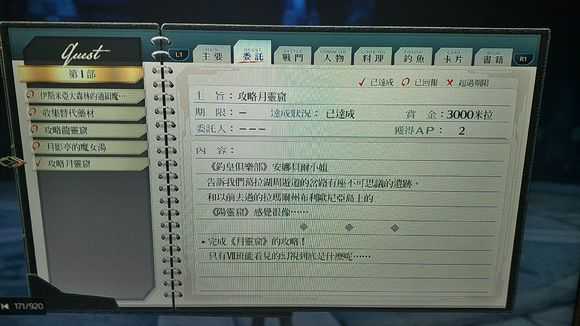 Quest
第1部
伊斯米亞大森林的過訓魔…
收集替代藥材
攻略龍靈窟
月影亭的魔女湯
攻略月靈窟
171/920
L1
主要
委託
戰鬥
人物
料理
釣魚
卡片
書籍
R1
已達成
已回報
超過期限
主 旨：攻略月靈窟
期 限：－ 達成狀況：已達成 賞 金：3000米拉
委託人：－－－ 獲得AP： 2
內 容：
《釣皇俱樂部》安娜貝爾小姐
告訴我們葛拉湖周遊道的岔路有座不可思議的遺跡。
和以前去過的拉瑪爾州布利歐尼亞島上的
《陽靈窟》感覺很像……
完成《月靈窟》的攻略！
只有Ⅶ班能看見的幻視到底是什麼呢……